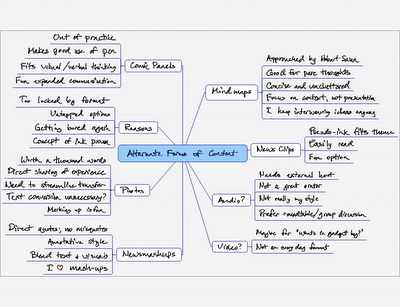 Out of practice
Makes good use of pen
Fits visual/verbal thinking
Fun expanded communication
Comic Panels
Too locked by format
Untapped options
Getting bored again
Concept of Ink proven
Reasons
Worth a thousand words
Direct sharing of experience
Need to streamline transfer
Text conversion unnecessary?
Marking up is fun
Photos
Direct quotes, no misquotes
Annotative style
Blend text & visuals
I ♥ mash-ups
Newsmashups
Alternate Forms of Content
Mindmaps
Approached by Hobart
Good for pure thoughts
Concise and uncluttered
Focus on content, not presentation
I keep interweaving ideas anyway
News Clips
Pseudo-ink fits theme
Easily read
Fun option
Audio?
Needs external host
Not a great orator
Not really my style
Prefer roundtable/group discussion
Video?
Maybe for "what's in gadget bag?"
Not an everyday format